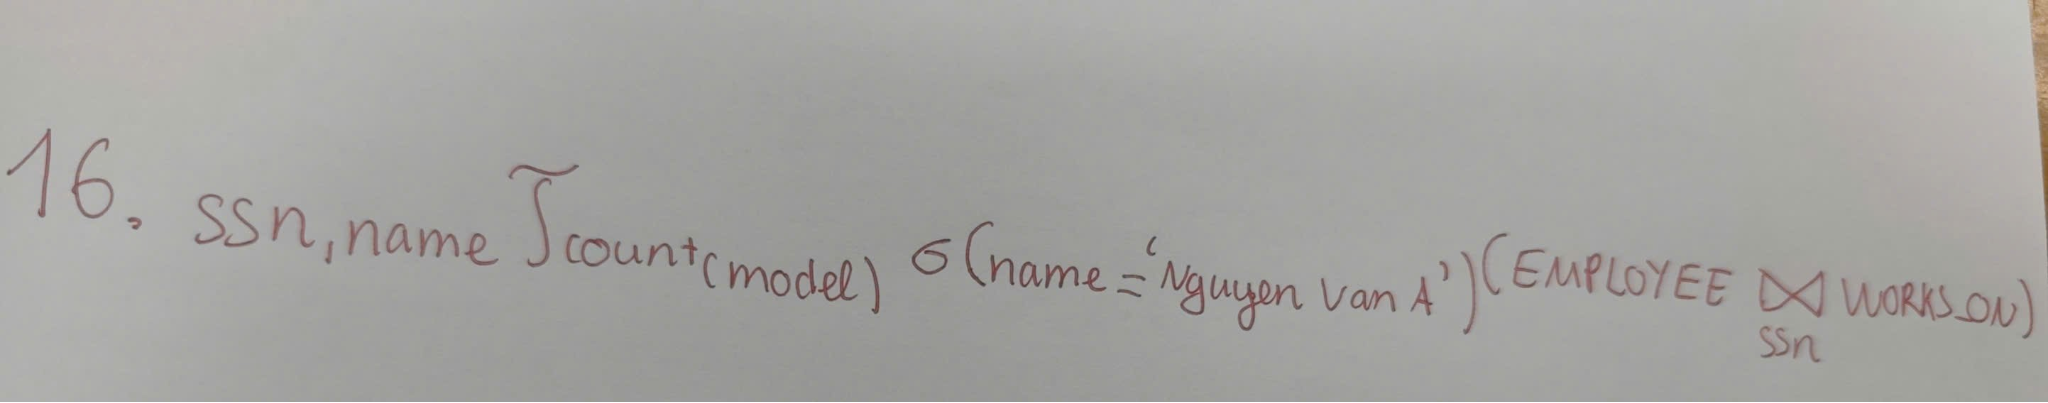 16. ssn, name ℑ count(model) σ(name = 'Nguyen Van A') (EMPLOYEE ⋈ ssn WORKS_ON)